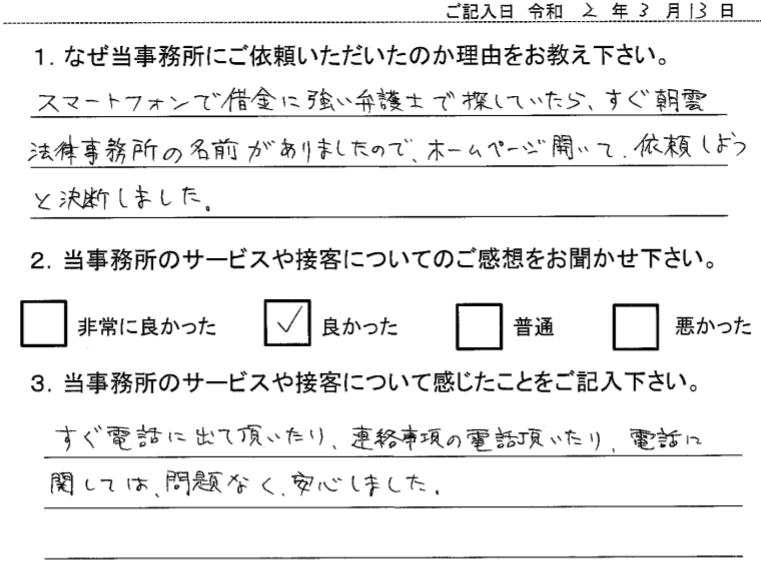 ご記入日 令和 2 年 3 月 13 日
1. なぜ当事務所にご依頼いただいたのか理由をお教え下さい。
スマートフォンで借金に強い弁護士で探していたら、すぐ朝雲
法律事務所の名前がありましたので、ホームページ開いて、依頼しよう
と決断しました。
2. 当事務所のサービスや接客についてのご感想をお聞かせ下さい。
非常に良かった ✓ 良かった 普通 悪かった
3. 当事務所のサービスや接客について感じたことをご記入下さい。
すぐ電話に出て頂いたり、連絡事項の電話頂いたり、電話に
関しては、問題なく、安心しました。